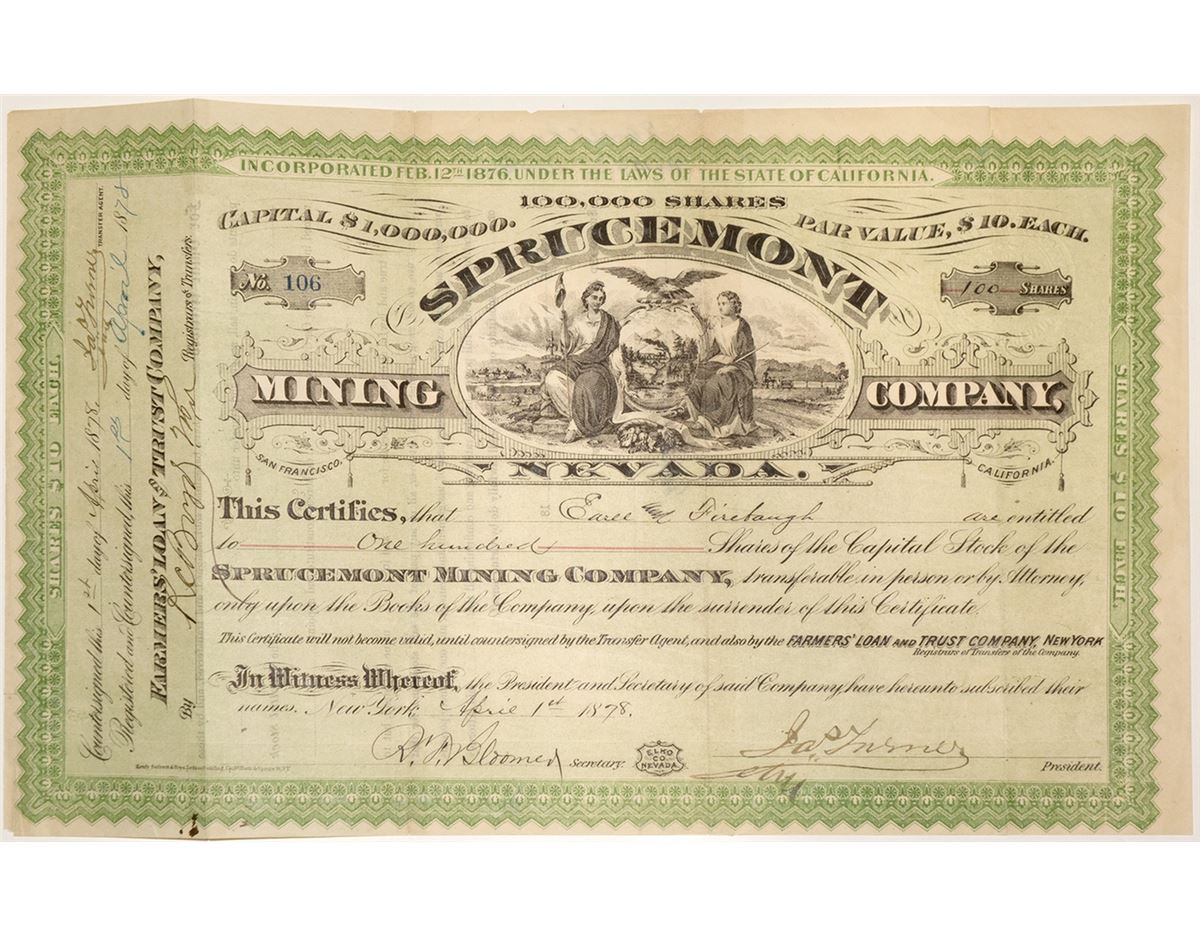 INCORPORATED FEB. 12TH 1876, UNDER THE LAWS OF THE STATE OF CALIFORNIA.
100,000 SHARES
CAPITAL $1,000,000.
PAR VALUE, $10. EACH.
SPRUCEMONT
No. 106
100 SHARES
MINING COMPANY,
SAN FRANCISCO,
NEVADA.
CALIFORNIA.
This Certifies, that Earll and Firebaugh are entitled
to One hundred Shares of the Capital Stock of the
SPRUCEMONT MINING COMPANY, transferable in person or by Attorney,
only upon the Books of the Company, upon the surrender of this Certificate.
This Certificate will not become valid, until countersigned by the Transfer Agent, and also by the FARMERS' LOAN AND TRUST COMPANY, NEW YORK
Registrars of Transfers of the Company.
In Witness Whereof, the President and Secretary of said Company have hereunto subscribed their
names. New York April 1st 1878.
R. F. Bloomer Secretary.
ELKO CO. NEVADA.
Jas Turner
President.
SHARES $10 EACH.
Countersigned this 1st day of April 1878. Jas Turner
TRANSFER AGENT.
Registered and Countersigned, this 1st day of April 1878
FARMERS' LOAN & TRUST COMPANY,
Registrars of Transfers.
By
SHARES $10 EACH.